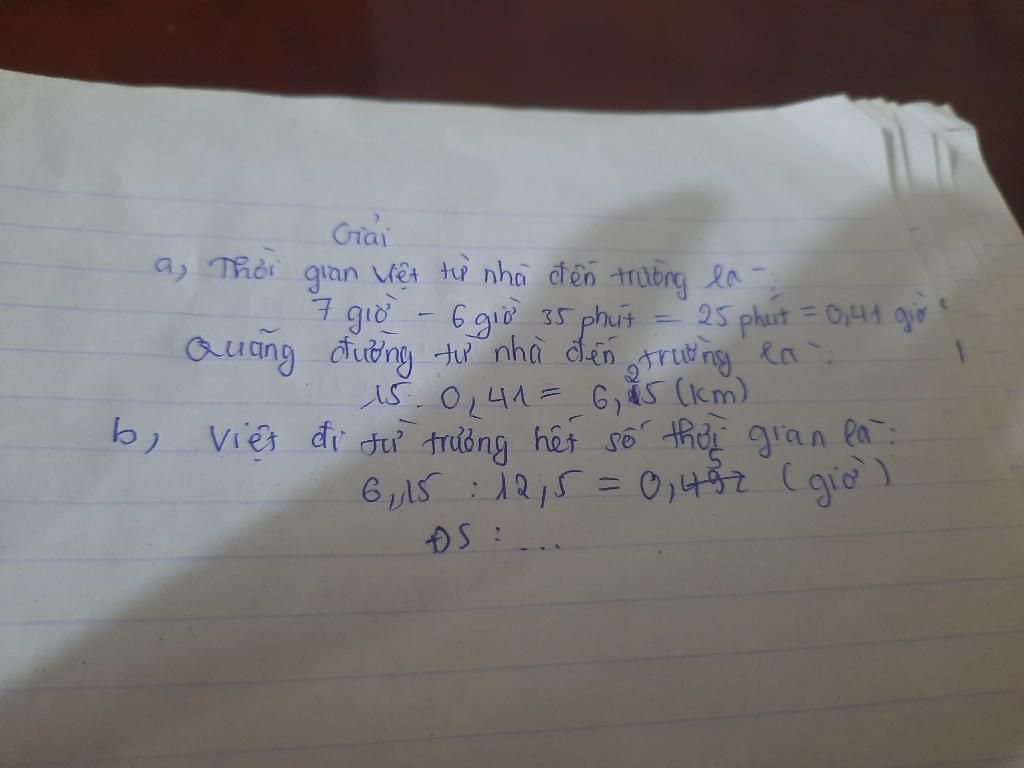 Giải
a, Thời gian Việt từ nhà đến trường là:
7 giờ - 6 giờ 35 phút = 25 phút = 0,41 giờ
Quãng đường từ nhà đến trường là:
15 . 0,41 = 6,25 (km)
b, Việt đi từ trường hết số thời gian là:
6,15 : 12,5 = 0,5 (giờ)
ĐS : ...